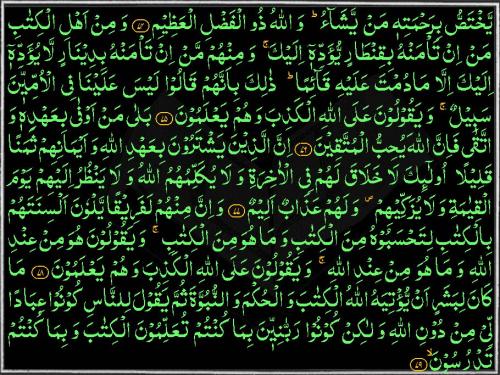 يَّخْتَصُّ بِرَحْمَتِهٖ مَنْ يَّشَآءُ ؕ وَ اللّٰهُ ذُو الْفَضْلِ الْعَظِيْمِ ﴿۷۴﴾ وَ مِنْ اَهْلِ الْكِتٰبِ
مَنْ اِنْ تَاْمَنْهُ بِقِنْطَارٍ يُّؤَدِّهٖۤ اِلَيْكَ ۚ وَ مِنْهُمْ مَّنْ اِنْ تَاْمَنْهُ بِدِيْنَارٍ لَّا يُؤَدِّهٖۤ
اِلَيْكَ اِلَّا مَا دُمْتَ عَلَيْهِ قَآئِمًا ؕ ذٰلِكَ بِاَنَّهُمْ قَالُوْا لَيْسَ عَلَيْنَا فِي الْاُمِّيّٖنَ
سَبِيْلٌ ۚ وَ يَقُوْلُوْنَ عَلَى اللّٰهِ الْكَذِبَ وَ هُمْ يَعْلَمُوْنَ ﴿۷۵﴾ بَلٰى مَنْ اَوْفٰى بِعَهْدِهٖ وَ
اتَّقٰى فَاِنَّ اللّٰهَ يُحِبُّ الْمُتَّقِيْنَ ﴿۷۶﴾ اِنَّ الَّذِيْنَ يَشْتَرُوْنَ بِعَهْدِ اللّٰهِ وَ اَيْمَانِهِمْ ثَمَنًا
قَلِيْلًا اُولٰٓئِكَ لَا خَلَاقَ لَهُمْ فِي الْاٰخِرَةِ وَ لَا يُكَلِّمُهُمُ اللّٰهُ وَ لَا يَنْظُرُ اِلَيْهِمْ يَوْمَ
الْقِيٰمَةِ وَ لَا يُزَكِّيْهِمْ ۪ وَ لَهُمْ عَذَابٌ اَلِيْمٌ ﴿۷۷﴾ وَ اِنَّ مِنْهُمْ لَفَرِيْقًا يَّلْوٗنَ اَلْسِنَتَهُمْ
بِالْكِتٰبِ لِتَحْسَبُوْهُ مِنَ الْكِتٰبِ وَ مَا هُوَ مِنَ الْكِتٰبِ ۚ وَ يَقُوْلُوْنَ هُوَ مِنْ عِنْدِ
اللّٰهِ وَ مَا هُوَ مِنْ عِنْدِ اللّٰهِ ۚ وَ يَقُوْلُوْنَ عَلَى اللّٰهِ الْكَذِبَ وَ هُمْ يَعْلَمُوْنَ ﴿۷۸﴾ مَا
كَانَ لِبَشَرٍ اَنْ يُّؤْتِيَهُ اللّٰهُ الْكِتٰبَ وَ الْحُكْمَ وَ النُّبُوَّةَ ثُمَّ يَقُوْلَ لِلنَّاسِ كُوْنُوْا عِبَادًا
لِّيْ مِنْ دُوْنِ اللّٰهِ وَ لٰكِنْ كُوْنُوْا رَبّٰنِيّٖنَ بِمَا كُنْتُمْ تُعَلِّمُوْنَ الْكِتٰبَ وَ بِمَا كُنْتُمْ
تَدْرُسُوْنَ ۙ﴿۷۹﴾